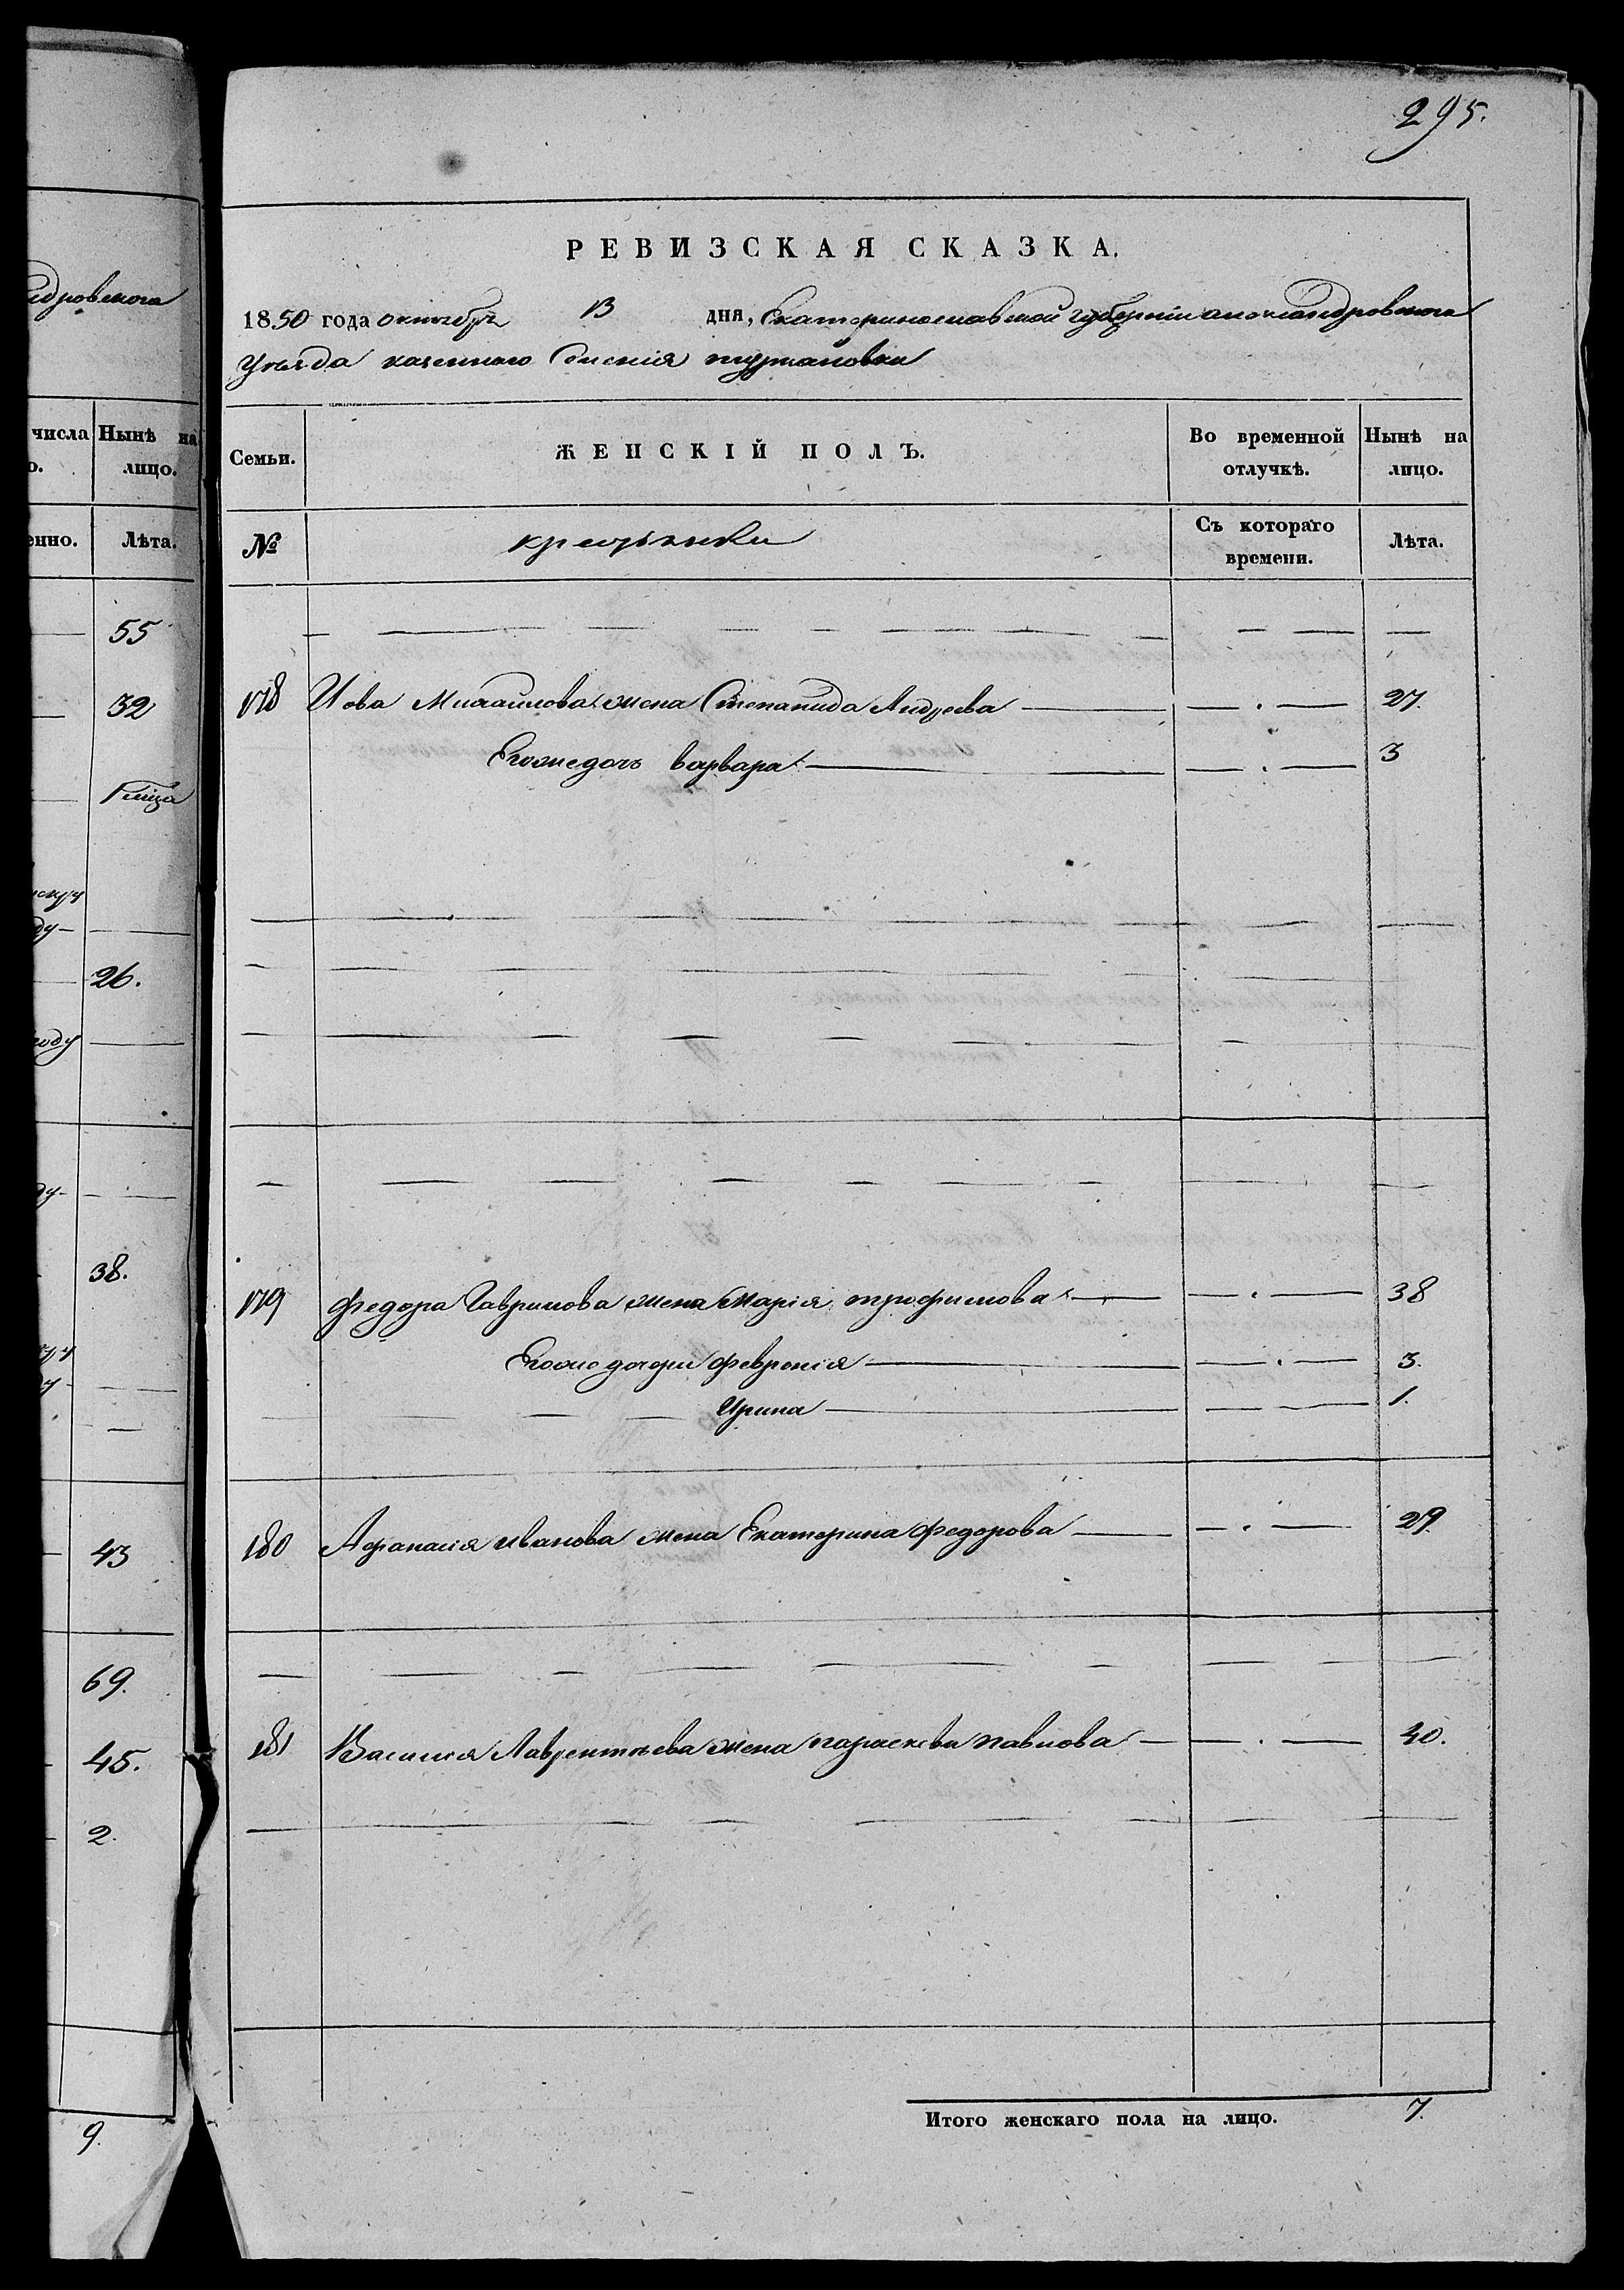 295.
РЕВИЗСКАЯ СКАЗКА.
1850 года октября 13 дня, Екатеринославской губернiи александровского
уезда казенного Селенiя туркановки
Семьи.
ЖЕНСКІЙ ПОЛЪ.
Во временной отлучкѣ.
Нынѣ на лицо.
№
крестьянки
Съ котораго времени.
Лѣта.
178 Иова Михайлова жена Степанида Андреева 27.
Егоже дочь варвара 3
179 Федора Гаврилова жена Марiя трофимова 38
Егоже дочери февронiя 3.
Ирина 1.
180 Афанасiя иванова жена Екатерина федорова 29.
181 Василия Лаврентьева жена параскева павлова 40.
Итого женскаго пола на лицо. 7.
числа
Нынѣ на
лицо.
Лѣта.
55
32
26.
38.
43
69.
45.
2.
9.